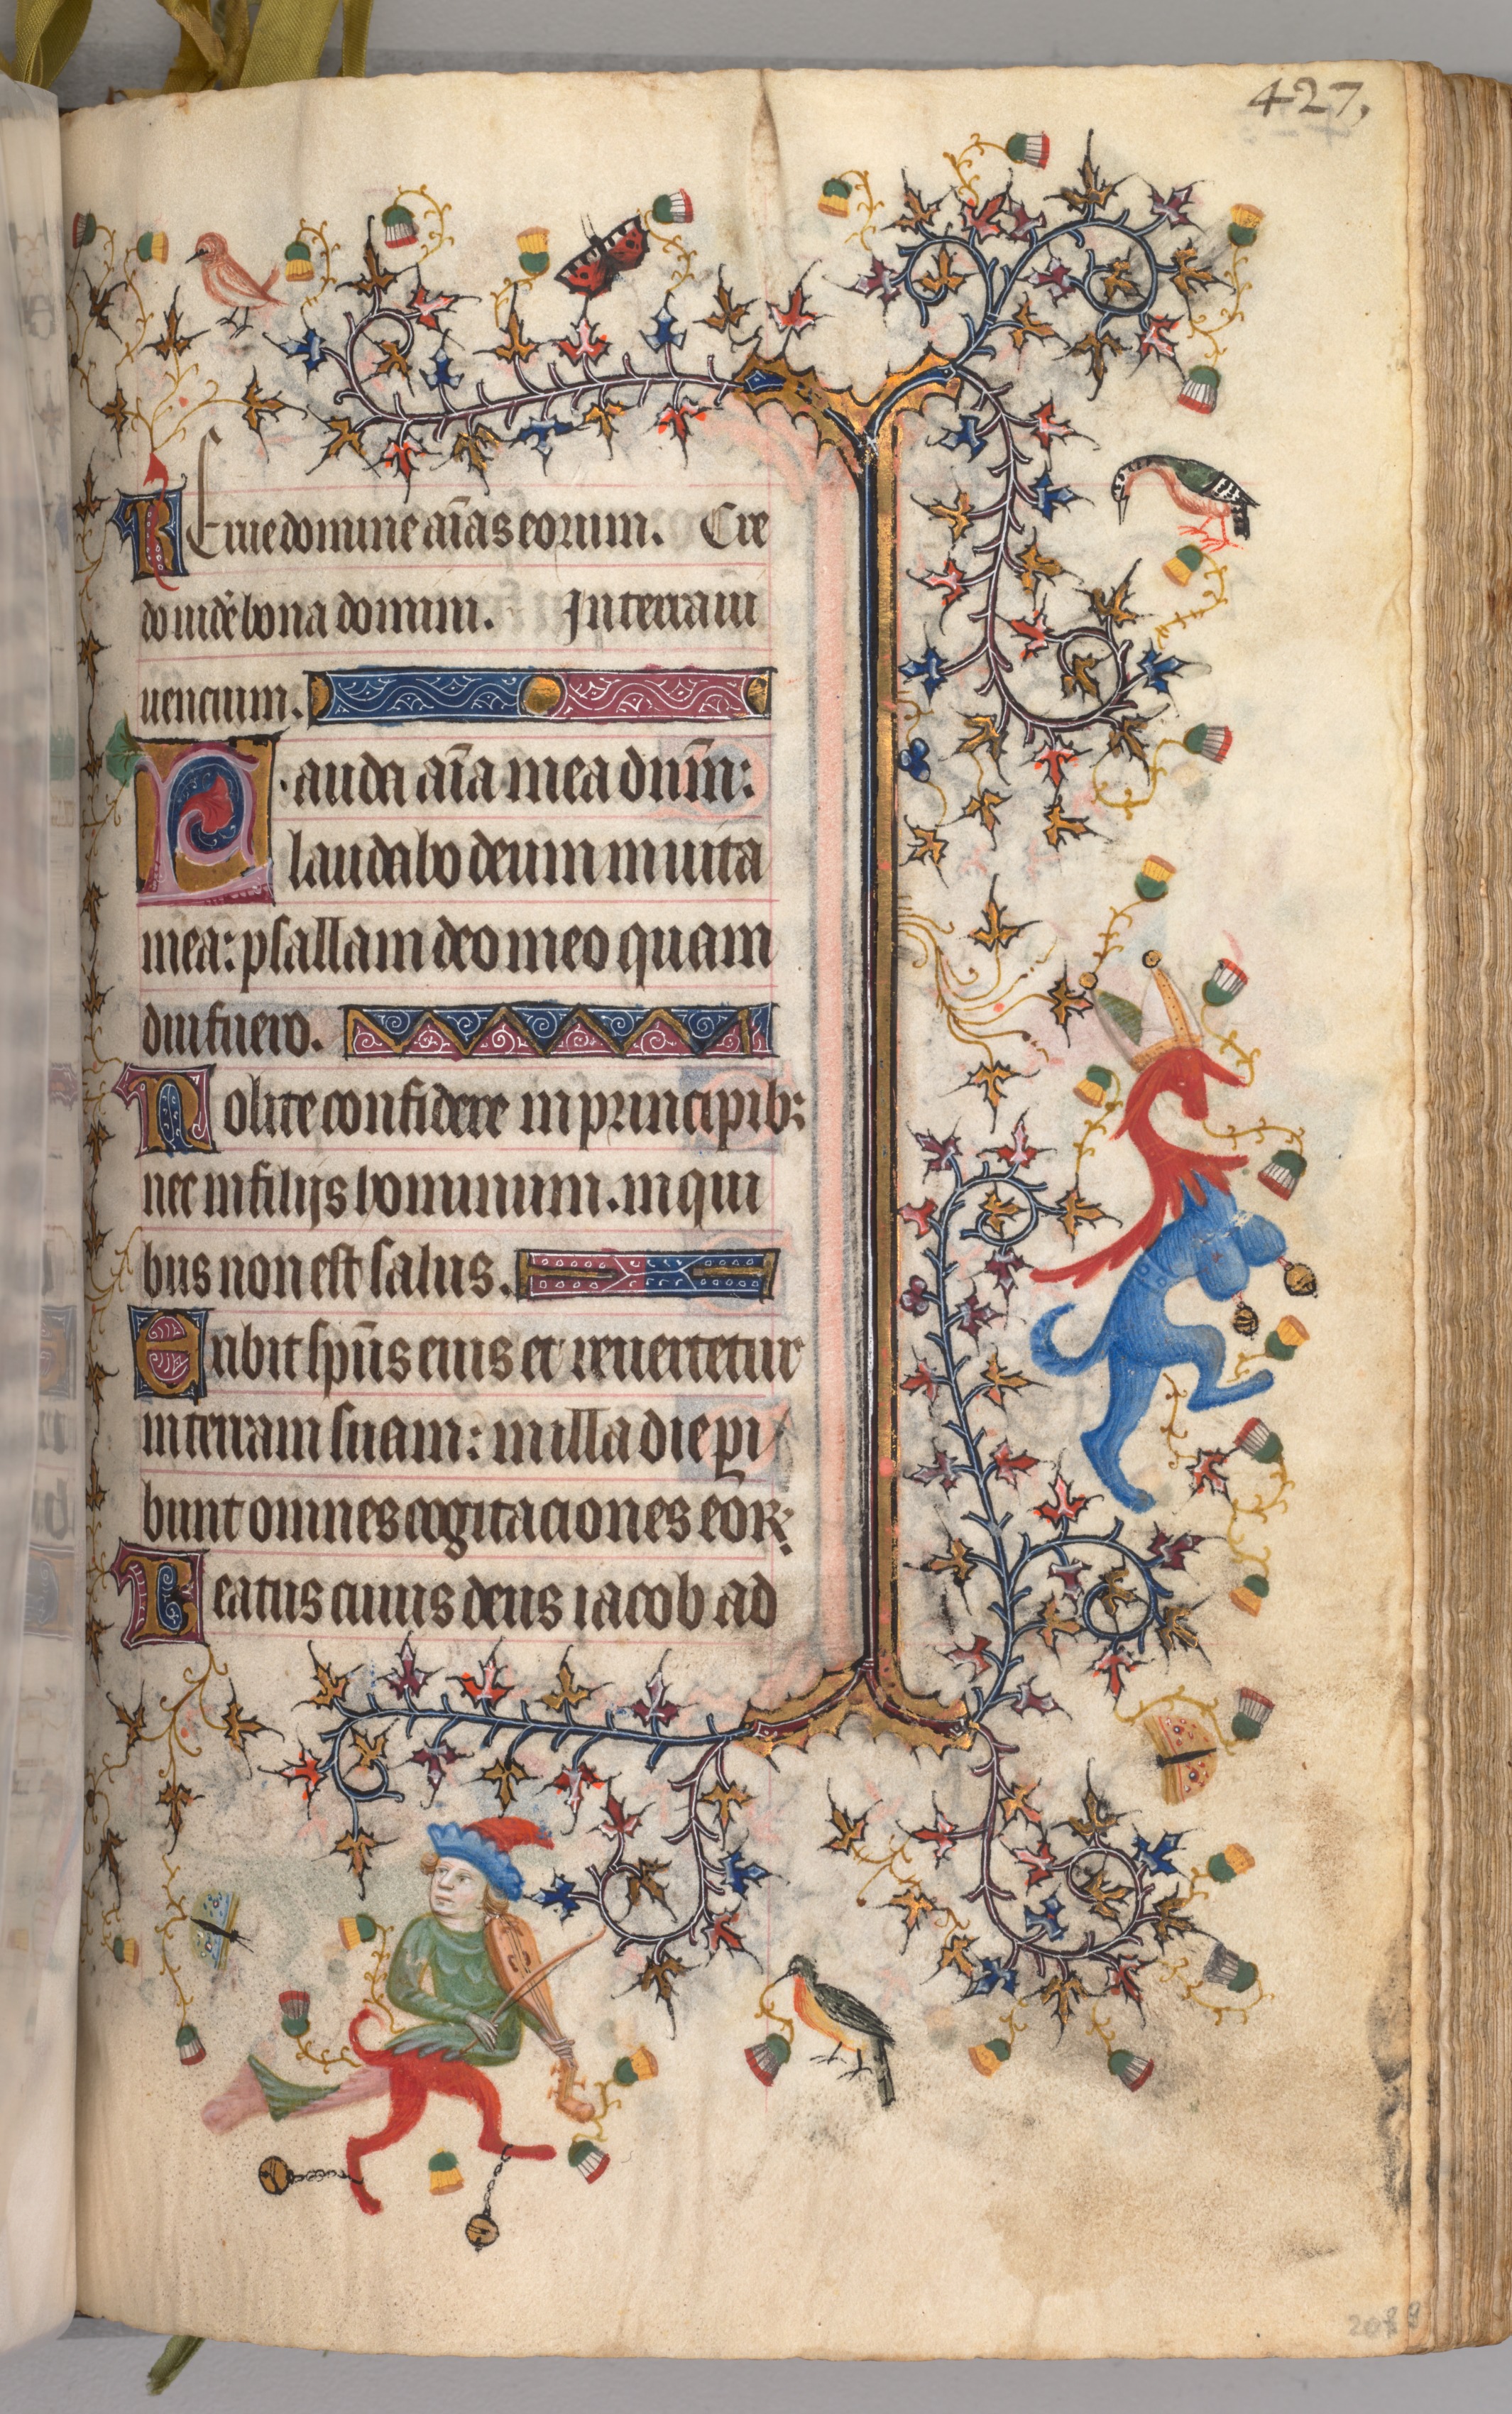 427,
Erue domine aīas eorum. Cre
do uidē bona domini. In terra ui
uencium.
Lauda aīa mea dnm̄:
laudabo deum in uita
mea: psallam deo meo quam
diu fuero.
Nolite confidere in principib:
nec in filijs hominum. in qui
bus non est salus.
Exibit spūs eius et reuertetur
in terram suam: in illa die ꝑi
bunt omnes cogitaciones eoꝝ.
Beatus cuius deus iacob ad